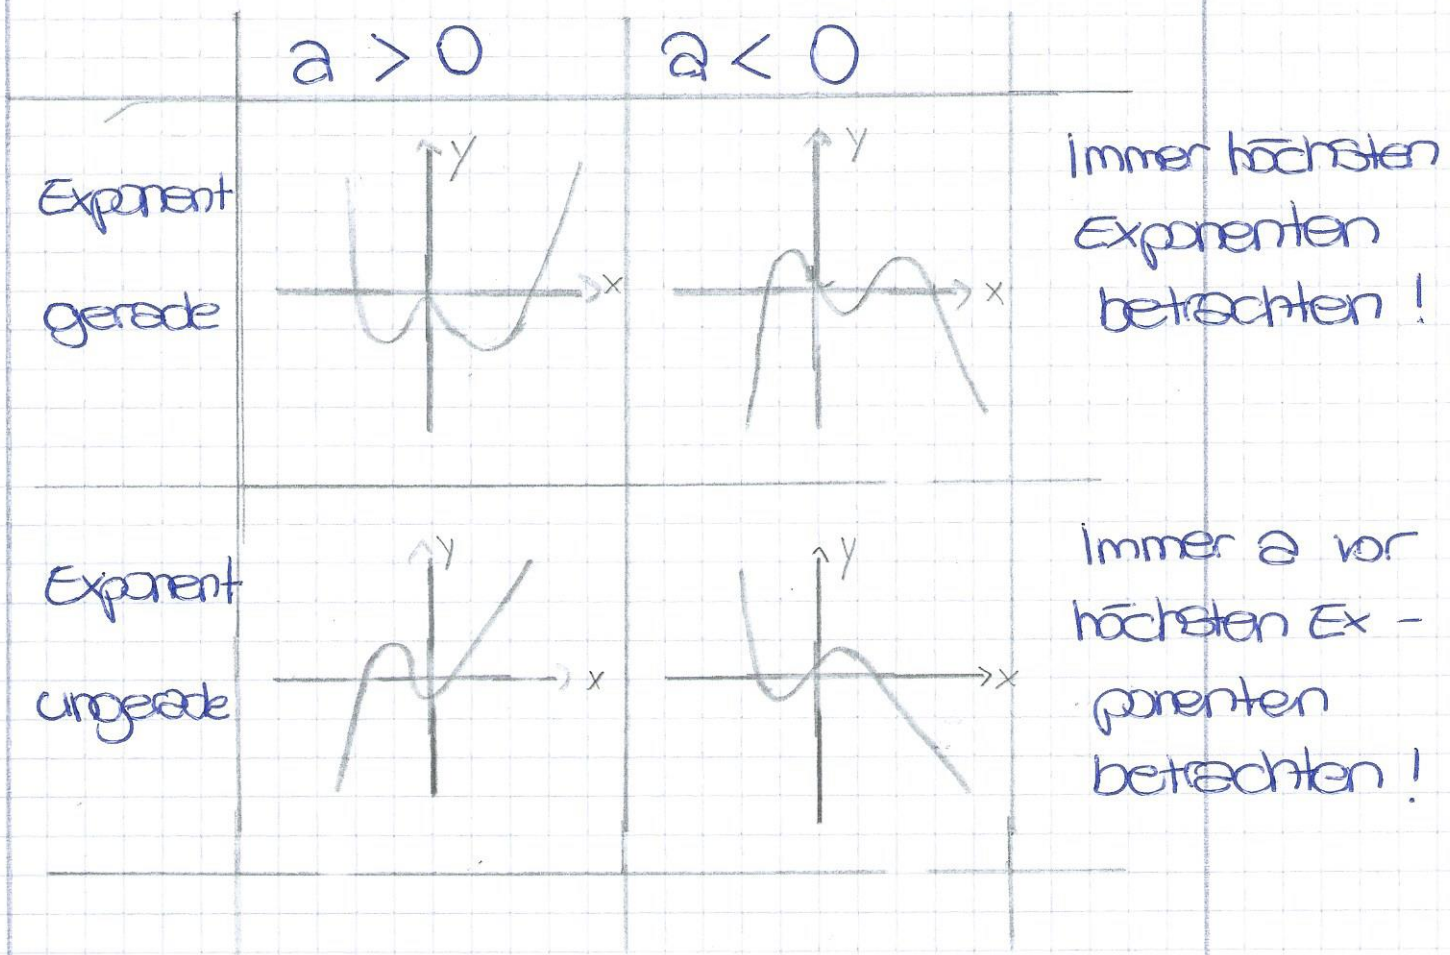 a > 0
a < 0
Exponent
gerade
y
x
y
x
Immer höchsten
Exponenten
betrachten !
Exponent
ungerade
y
x
y
x
Immer a vor
höchsten Ex -
ponenten
betrachten !